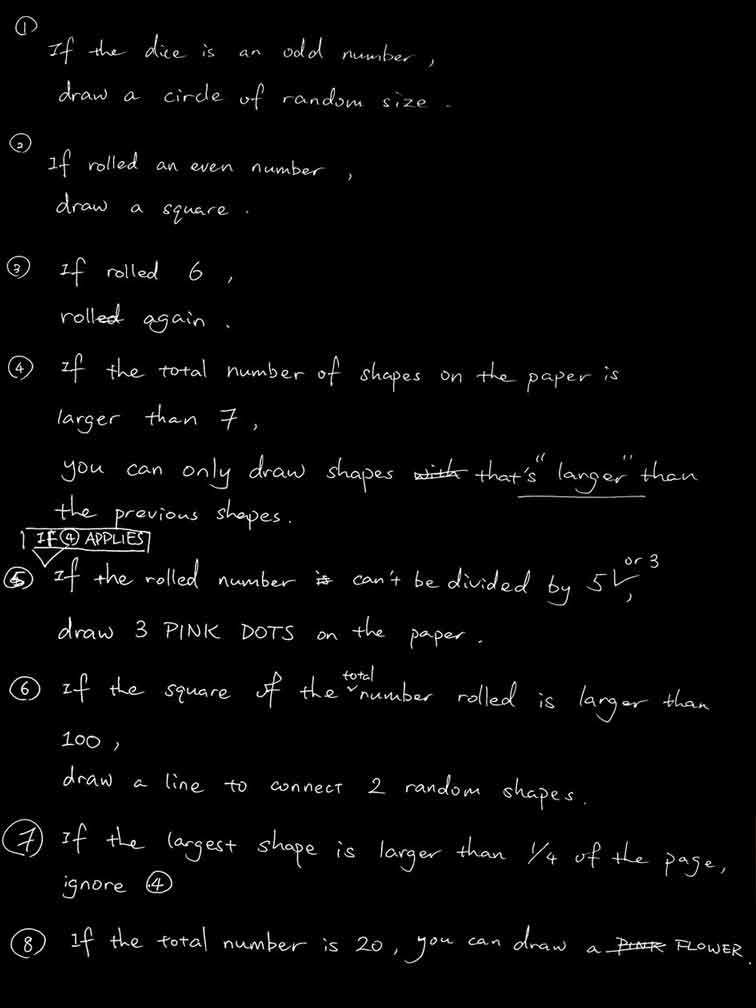 ①
If the dice is an odd number,
draw a circle of random size.
②
If rolled an even number,
draw a square.
③ If rolled 6,
rolled again.
④ If the total number of shapes on the paper is
larger than 7,
you can only draw shapes with that's "larger" than
the previous shapes.
If ④ APPLIES
⑤ If the rolled number is can't be divided by 5 or 3,
draw 3 PINK DOTS on the paper.
⑥ If the square of the total number rolled is larger than
100,
draw a line to connect 2 random shapes.
⑦ If the largest shape is larger than 1/4 of the page,
ignore ④
⑧ If the total number is 20, you can draw a PINK FLOWER.